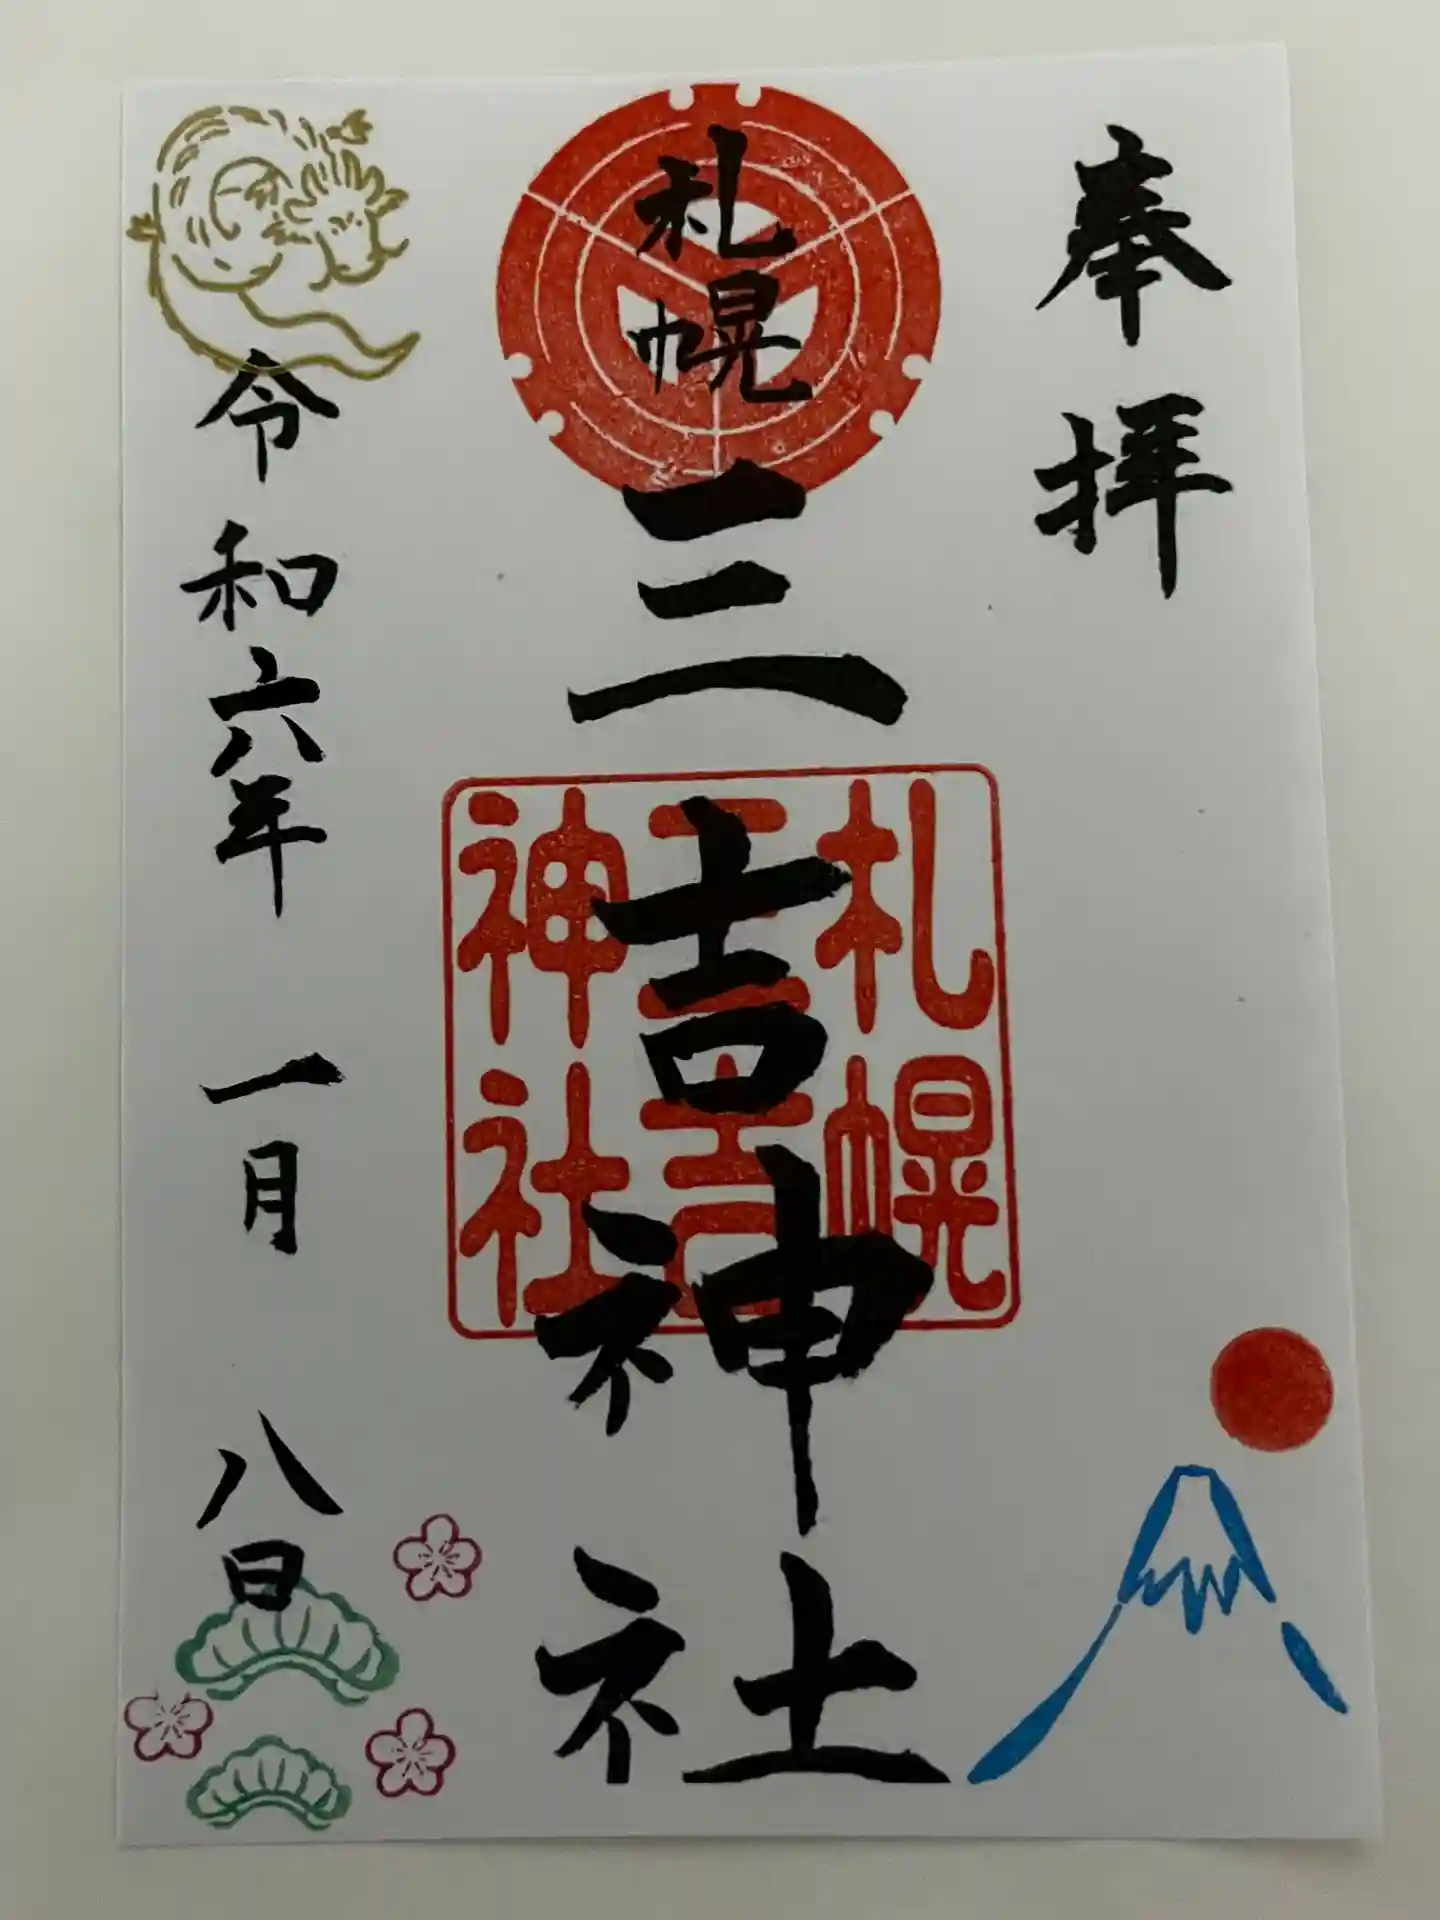 奉拝
札幌
三吉神社
札幌
三吉
神社
令和六年 一月 八日